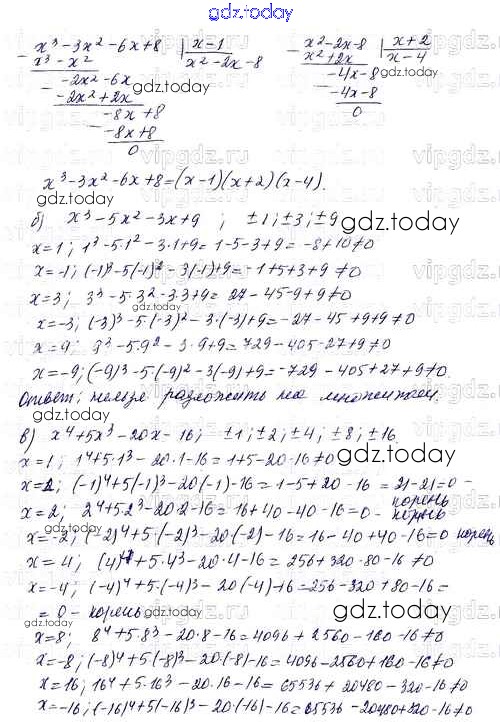 gdz.today
x³ - 3x² - 6x + 8 | x - 1
x³ - x² | x² - 2x - 8
- 2x² - 6x
- 2x² + 2x
- 8x + 8
- 8x + 8
0
x² - 2x - 8 | x + 2
x² + 2x | x - 4
- 4x - 8
- 4x - 8
0
x³ - 3x² - 6x + 8 = (x - 1)(x + 2)(x - 4).
б) x³ - 5x² - 3x + 9 ; ±1; ±3; ±9
gdz.today
x = 1; 1³ - 5·1² - 3·1 + 9 = 1 - 5 - 3 + 9 = -8 + 10 ≠ 0
x = -1; (-1)³ - 5(-1)² - 3(-1) + 9 = -1 + 5 + 3 + 9 ≠ 0
x = 3; 3³ - 5·3² - 3·3 + 9 = 27 - 45 - 9 + 9 ≠ 0
x = -3; (-3)³ - 5·(-3)² - 3·(-3) + 9 = -27 - 45 + 9 + 9 ≠ 0
x = 9; 9³ - 5·9² - 3·9 + 9 = 729 - 405 - 27 + 9 ≠ 0
x = -9; (-9)³ - 5·(-9)² - 3(-9) + 9 = -729 - 405 + 27 + 9 ≠ 0.
Ответ: нельзя разложить на множители.
gdz.today
в) x⁴ + 5x³ - 20x - 16; ±1; ±2; ±4; ±8; ±16.
x = 1; 1⁴ + 5·1³ - 20·1 - 16 = 1 + 5 - 20 - 16 ≠ 0
x = -1; (-1)⁴ + 5(-1)³ - 20(-1) - 16 = 1 - 5 + 20 - 16 = 21 - 21 = 0 - корень
x = 2; 2⁴ + 5·2³ - 20·2 - 16 = 16 + 40 - 40 - 16 = 0 - корень
x = -2; (-2)⁴ + 5·(-2)³ - 20(-2) - 16 = 16 - 40 + 40 - 16 = 0 корень
x = 4; (4)⁴ + 5·4³ - 20·4 - 16 = 256 + 320 - 80 - 16 ≠ 0
x = -4; (-4)⁴ + 5·(-4)³ - 20(-4) - 16 = 256 - 320 + 80 - 16 =
= 0 - корень
x = 8; 8⁴ + 5·8³ - 20·8 - 16 = 4096 + 2560 - 160 - 16 ≠ 0
x = -8; (-8)⁴ + 5(-8)³ - 20·(-8) - 16 = 4096 - 2560 + 160 - 16 ≠ 0
x = 16; 16⁴ + 5·16³ - 20·16 - 16 = 65536 + 20480 - 320 - 16 ≠ 0
x = -16; (-16)⁴ + 5(-16)³ - 20·(-16) - 16 = 65536 - 20480 + 320 - 16 ≠ 0
gdz.today